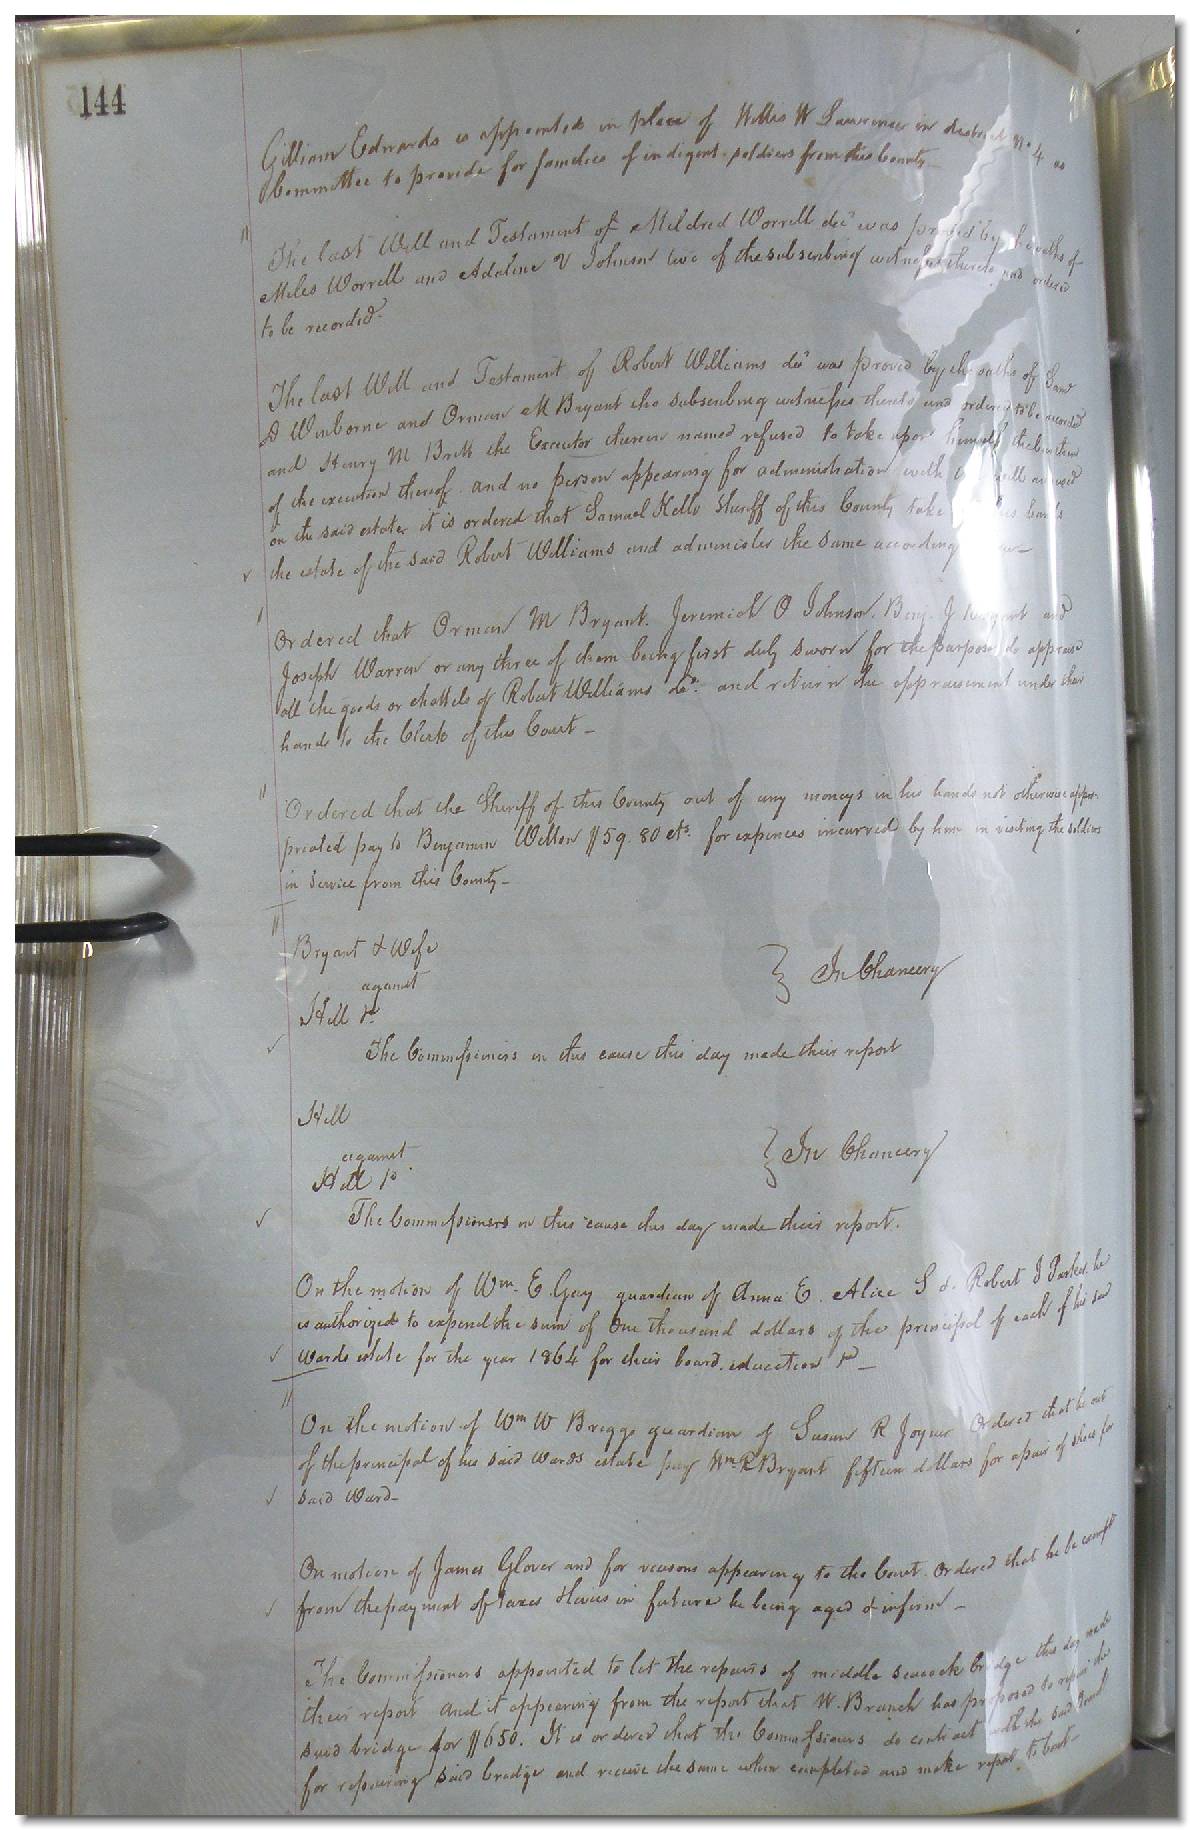 144
Gilliam Edwards is appointed in place of Willis W Lawrence in district No 4 as
Committee to provide for families of indigent soldiers from this County—
The last Will and Testament of Mildred Worrell decd was proved by the oaths of
Miles Worrell and Adaline V Johnson two of the subscribing witnesses thereto and ordered
to be recorded.
The last Will and Testament of Robert Williams decd was proved by the oaths of Saml
D Winborne and Orman M Bryant the subscribing witnesses thereto and ordered to be recorded
and Henry M Britt the Executor therein named refused to take upon himself the burthen
of the execution thereof. and no person appearing for administration with will annexed
on the said estate, it is ordered that Samuel Kello Sheriff of this County take his hands
the estate of the said Robert Williams and administer the same according
Ordered that Orman M Bryant. Jeremiah O Johnson. Benj. J and
Joseph Warren or any three of them being first duly sworn for the purpose do appraise
all the goods or chattels of Robert Williams decd. and return the appraisement under their
hands to the Clerk of this Court—
Ordered that the Sheriff of this County out of any moneys in his hands not otherwise appro-
preated pay to Benjamin Welton $59.80 cts. for expences incurred by him in visiting the soldiers
in service from this County—
Bryant & Wife
against
Hill &c
} In Chancery
The Commissioners in this cause this day made their report
Hill
against
Hill &c
} In Chancery
The Commissioners in this cause this day made their report.
On the motion of Wm. E. Gay guardian of Anna E. Alice S & Robert J Parker he
is authorized to expend the sum of One thousand dollars of the principal of each of his said
wards estate for the year 1864 for their board. education &c—
On the motion of Wm W Briggs guardian of Susan R Joyner Ordered that he out
of the principal of his said wards estate pay Wm. R Bryant fifteen dollars for a pair of shoes for
said Ward—
On motion of James Glover and for reasons appearing to the Court. Ordered that he be exempt
from the payment of taxes & levies in future he being aged & infirm—
The Commissioners appointed to let the repairs of middle seacock bridge this day made
their report and it appearing from the report that W. Branch has proposed to repair the
said bridge for $650. It is ordered that the Commissioners do contract with the said Branch
for repairing said bridge and receive the same when completed and make report to Court—